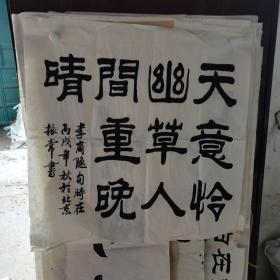 天意怜
幽草人
間重晚
晴
李商隐句時在
丙戌年秋於北京
振常書